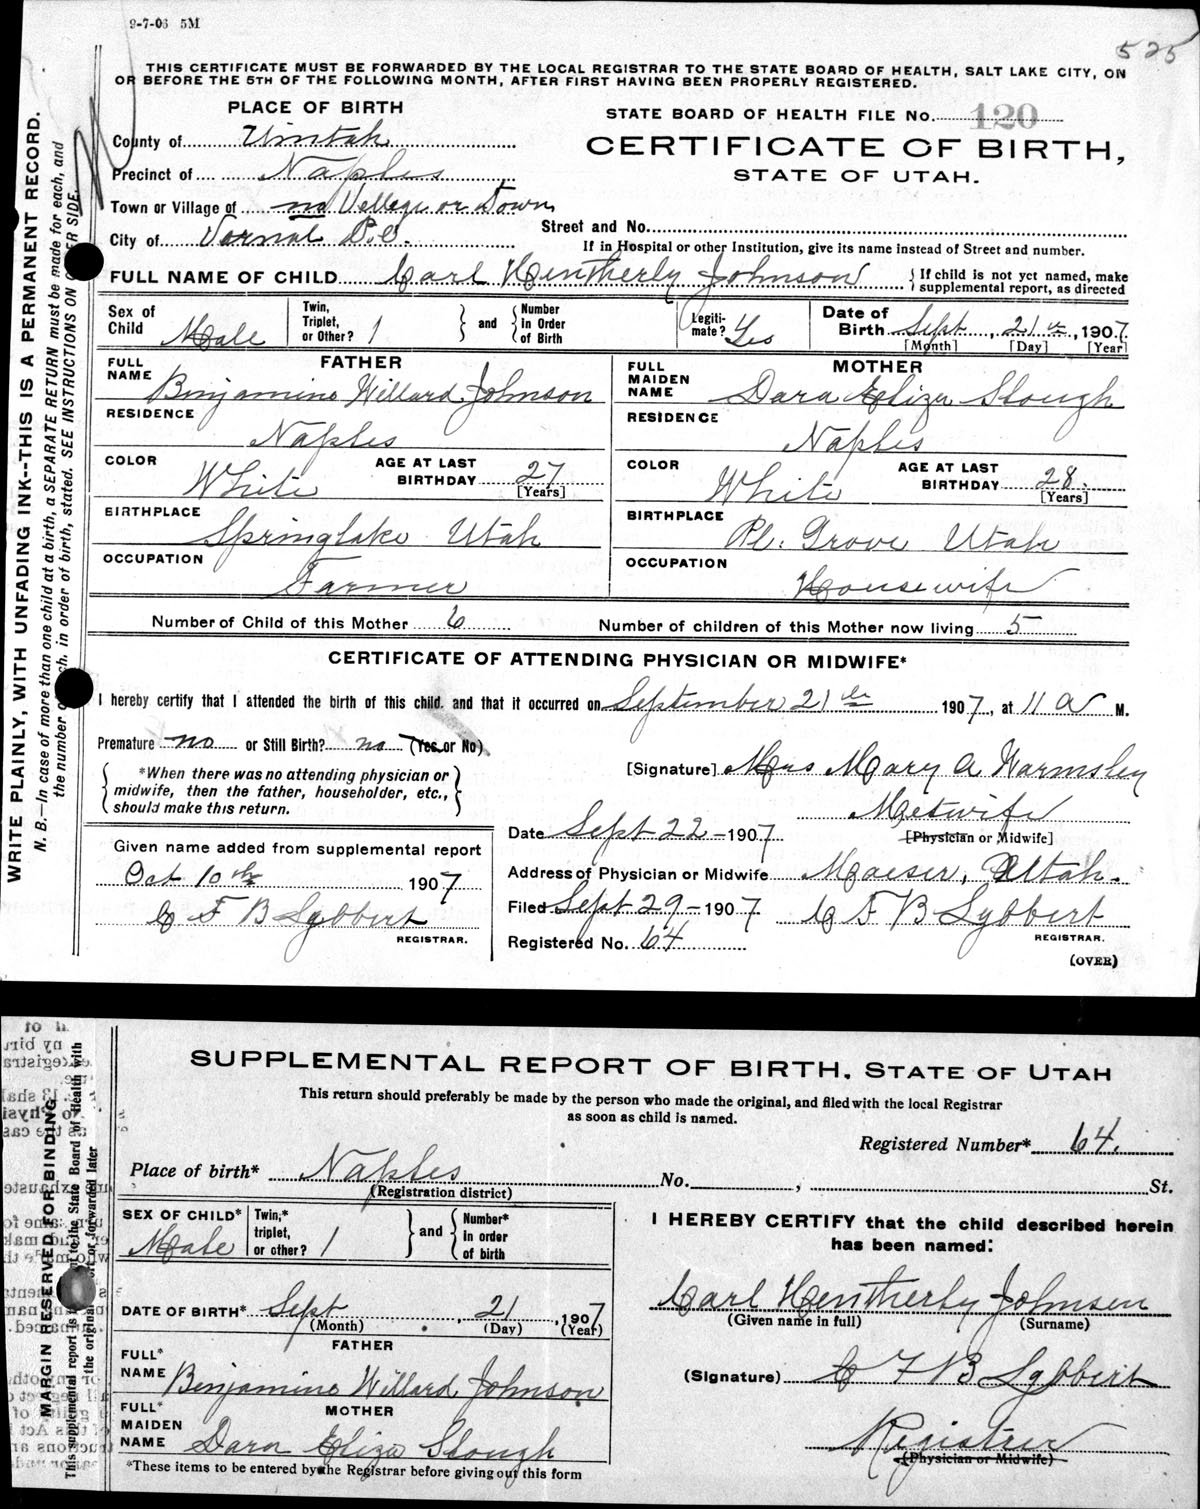 9-7-06 5M
525
THIS CERTIFICATE MUST BE FORWARDED BY THE LOCAL REGISTRAR TO THE STATE BOARD OF HEALTH, SALT LAKE CITY, ON
OR BEFORE THE 5TH OF THE FOLLOWING MONTH, AFTER FIRST HAVING BEEN PROPERLY REGISTERED.
WRITE PLAINLY, WITH UNFADING INK--THIS IS A PERMANENT RECORD.
N. B.—In case of more than one child at a birth, a SEPARATE RETURN must be made for each, and
the number of each, in order of birth, stated. SEE INSTRUCTIONS ON OTHER SIDE.
PLACE OF BIRTH
STATE BOARD OF HEALTH FILE No. 120
County of Uintah
CERTIFICATE OF BIRTH,
Precinct of Naples
STATE OF UTAH.
Town or Village of no Vellege or Town
Street and No.
City of Vernal P.O.
If in Hospital or other Institution, give its name instead of Street and number.
FULL NAME OF CHILD Carl Hentherly Johnson { If child is not yet named, make supplemental report, as directed
Sex of Child Male Twin, Triplet, or Other? 1 } and { Number in Order of Birth Legitimate? Yes Date of Birth Sept, 21st, 1907
[Month] [Day] [Year]
FATHER
MOTHER
FULL NAME Benjamine Willard Johnson
FULL MAIDEN NAME Dara Eliza Slough
RESIDENCE Naples
RESIDENCE Naples
COLOR White AGE AT LAST BIRTHDAY 27 [Years]
COLOR White AGE AT LAST BIRTHDAY 28. [Years]
BIRTHPLACE Springlake Utah
BIRTHPLACE Pl. Grove Utah
OCCUPATION Farmer
OCCUPATION Housewife
Number of Child of this Mother 6 Number of children of this Mother now living 5
CERTIFICATE OF ATTENDING PHYSICIAN OR MIDWIFE*
I hereby certify that I attended the birth of this child. and that it occurred on September 21st 1907, at 11 a M.
Premature no or Still Birth? no (Yes or No)
*When there was no attending physician or
midwife, then the father, householder, etc.,
should make this return.
[Signature] Mrs Mary A Warmsley
Metwife
[Physician or Midwife]
Date Sept 22-1907
Given name added from supplemental report
Oct 10th 1907
C F B Lybbert
REGISTRAR.
Address of Physician or Midwife Maeser, Utah.
Filed Sept 29-1907 C F B Lybbert
REGISTRAR.
Registered No. 64
(OVER)
SUPPLEMENTAL REPORT OF BIRTH. STATE OF UTAH
This return should preferably be made by the person who made the original, and filed with the local Registrar
as soon as child is named.
MARGIN RESERVED FOR BINDING
Registered Number* 64.
Place of birth* Naples No. , St.
(Registration district)
SEX OF CHILD* Male Twin,* triplet, or other? 1 } and { Number* in order of birth
I HEREBY CERTIFY that the child described herein
has been named:
Carl Hentherly Johnsen
(Given name in full) (Surname)
DATE OF BIRTH* Sept, 21, 1907
(Month) (Day) (Year)
FATHER
FULL* NAME Benjamine Willard Johnson
(Signature) C F B Lybbert
MOTHER
FULL* MAIDEN NAME Dara Eliza Slough
Registrer
(Physician or Midwife)
*These items to be entered by the Registrar before giving out this form